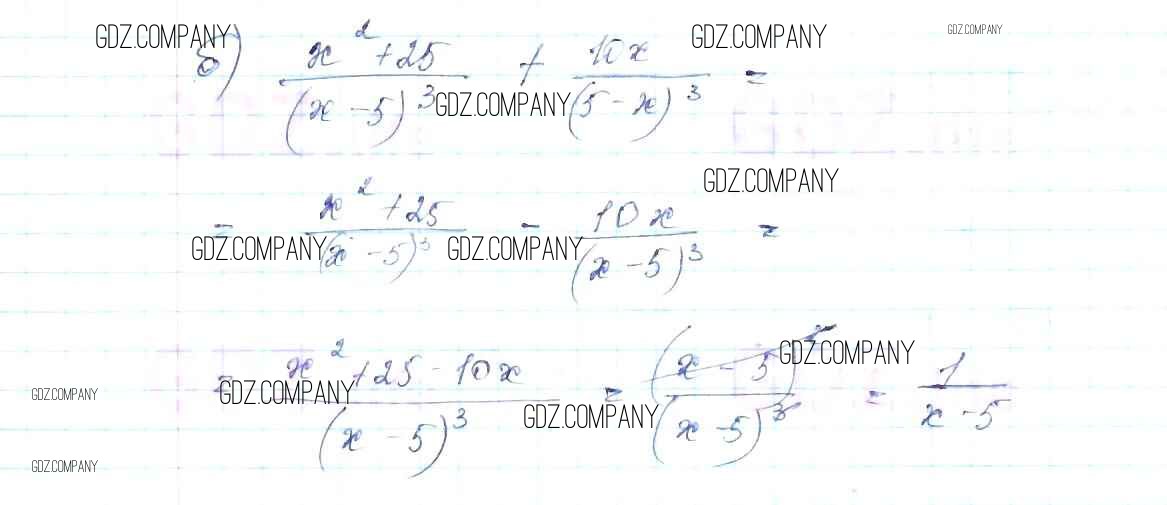 GDZ.COMPANY GDZ.COMPANY GDZ.COMPANY
б) (x² + 25)/(x - 5)³ + 10x/(5 - x)³ =
GDZ.COMPANY
GDZ.COMPANY
= (x² + 25)/(x - 5)³ - 10x/(x - 5)³ =
GDZ.COMPANY GDZ.COMPANY
GDZ.COMPANY
= (x² + 25 - 10x)/(x - 5)³ = (x - 5)²/(x - 5)³ = 1/(x - 5)
GDZ.COMPANY GDZ.COMPANY GDZ.COMPANY
GDZ.COMPANY